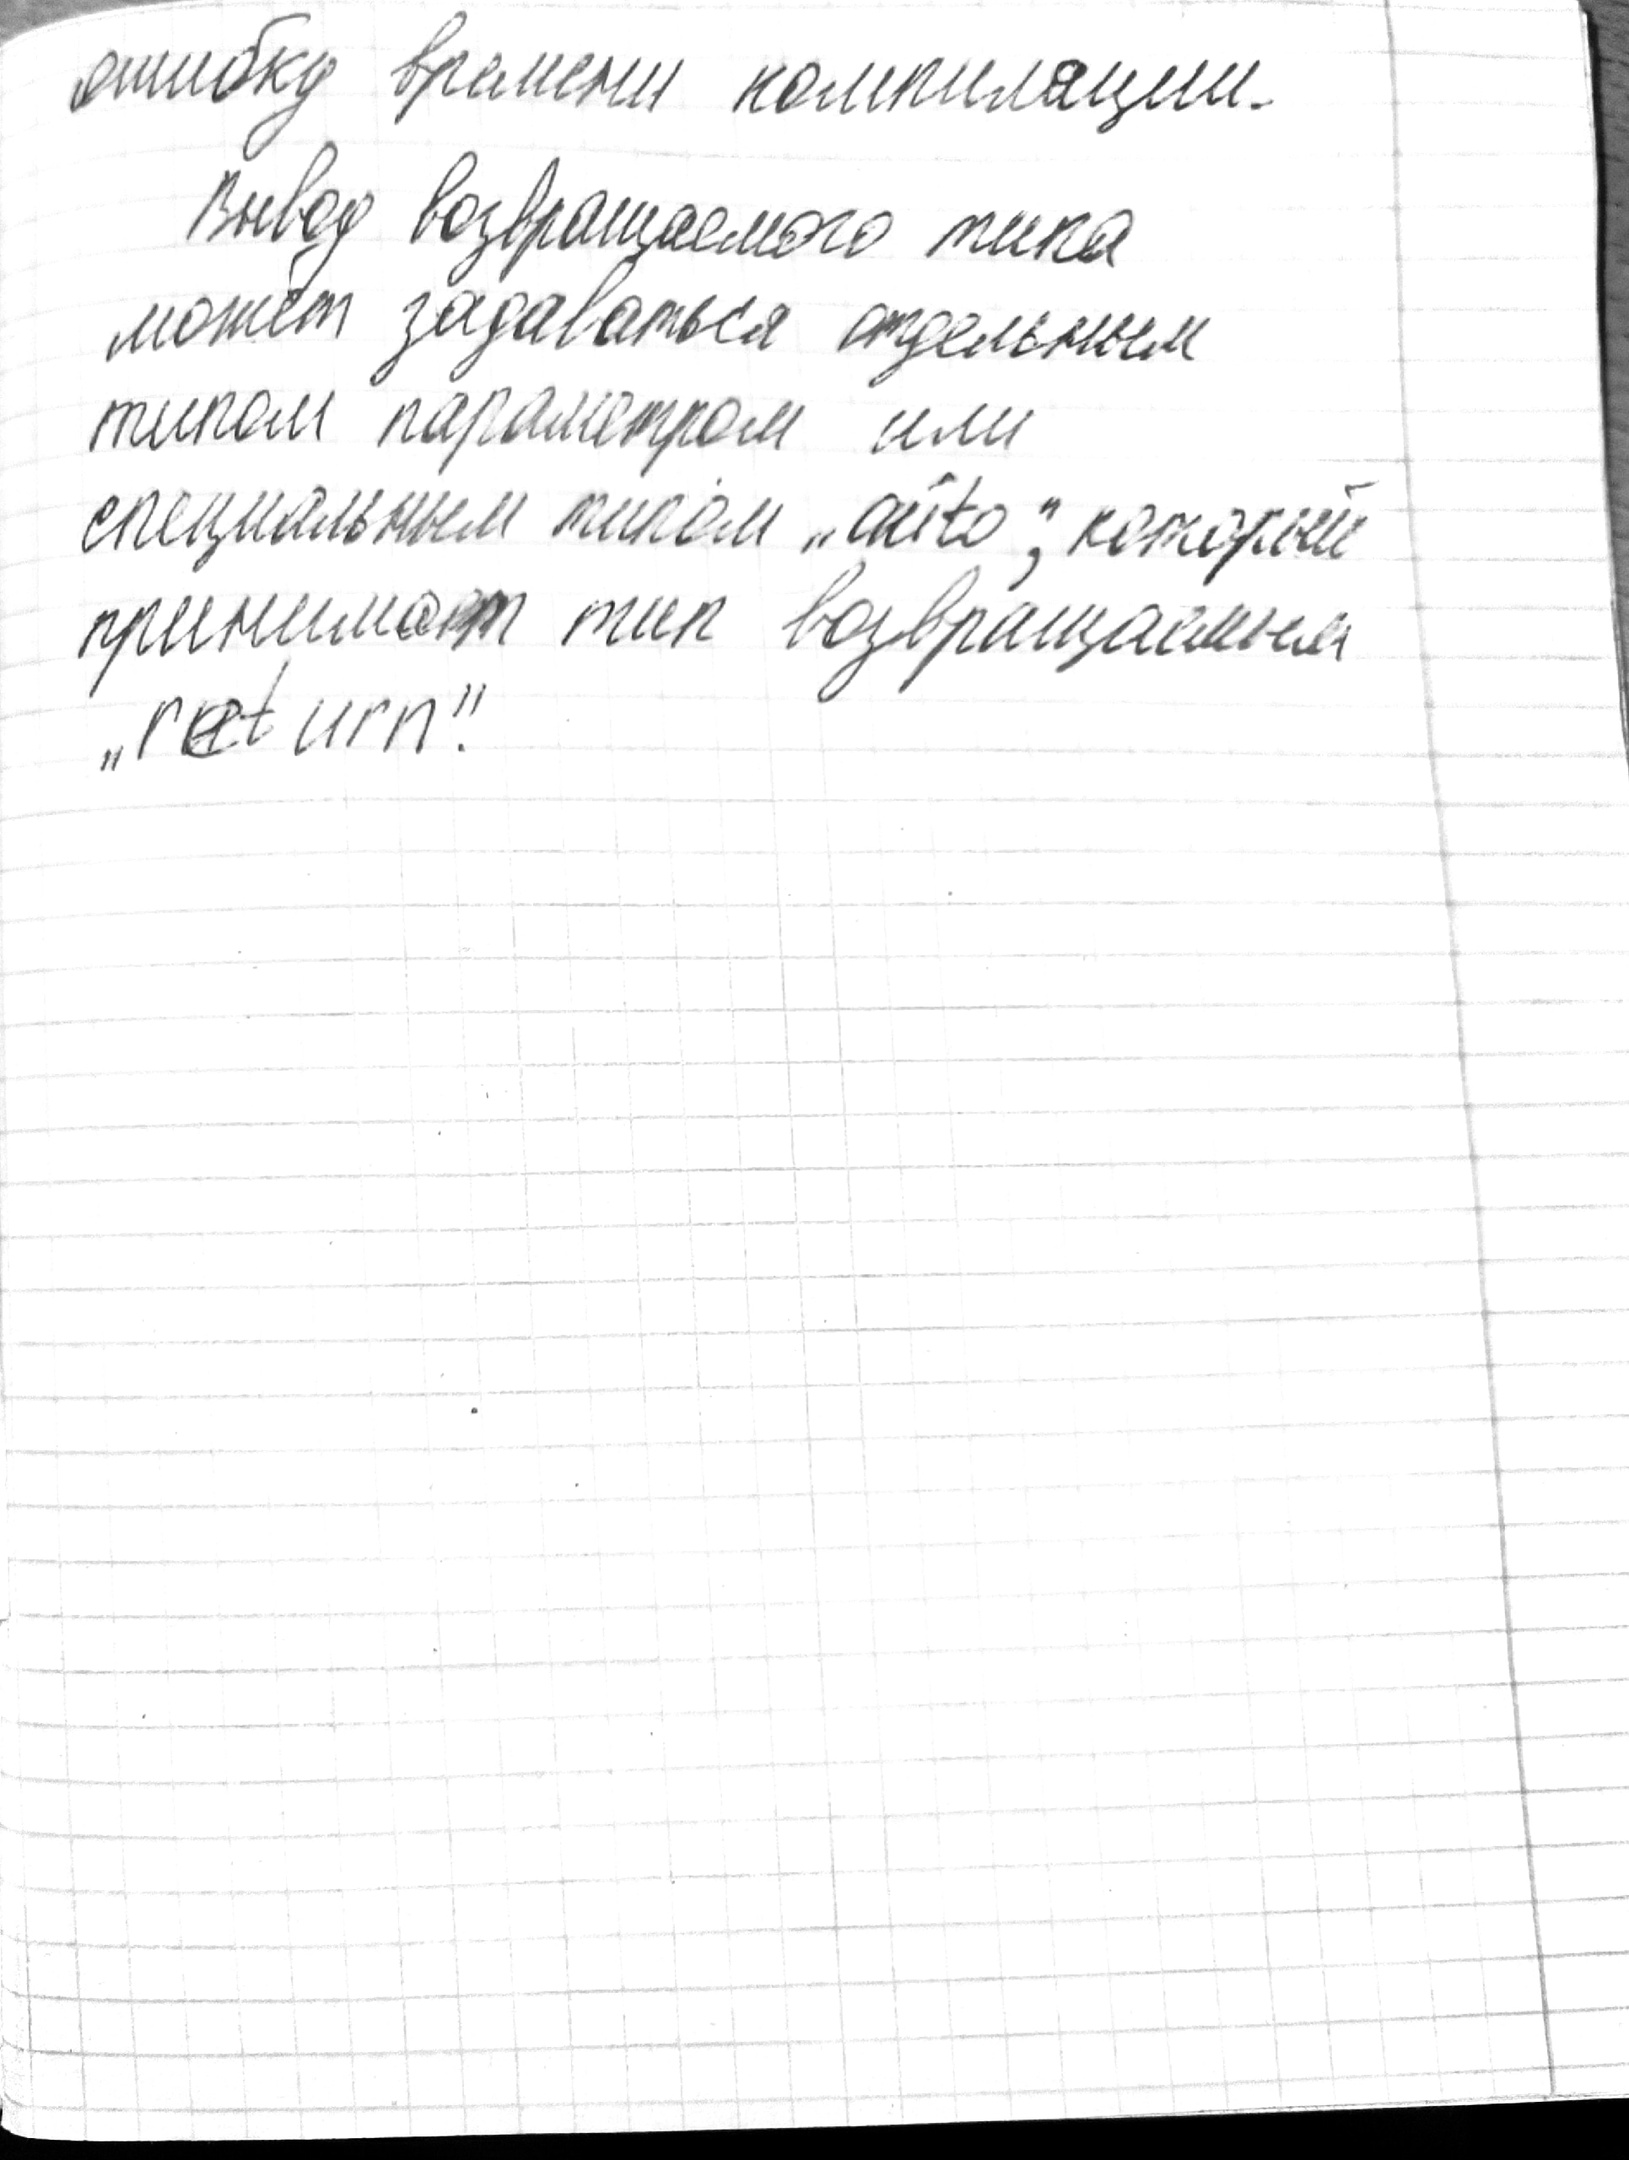 ошибку времени компиляции.
Вывод возвращаемого типа
может задаваться отдельным
типом параметром или
специальным типом „auto“, который
принимает тип возвращаемым
„return“.